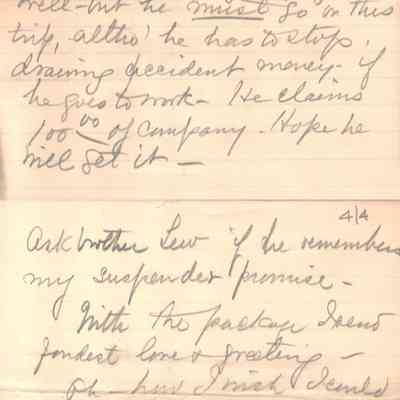 well - but he must go on this
trip, altho' he has to stop
drawing accident money - if
he goes to work - He claims
100 00 of Company - Hope he
will get it -
4/4
Ask brother Lew if he remembers
my suspender promise -
With the package I send
fondest love & greeting -
Oh - how I wish I could